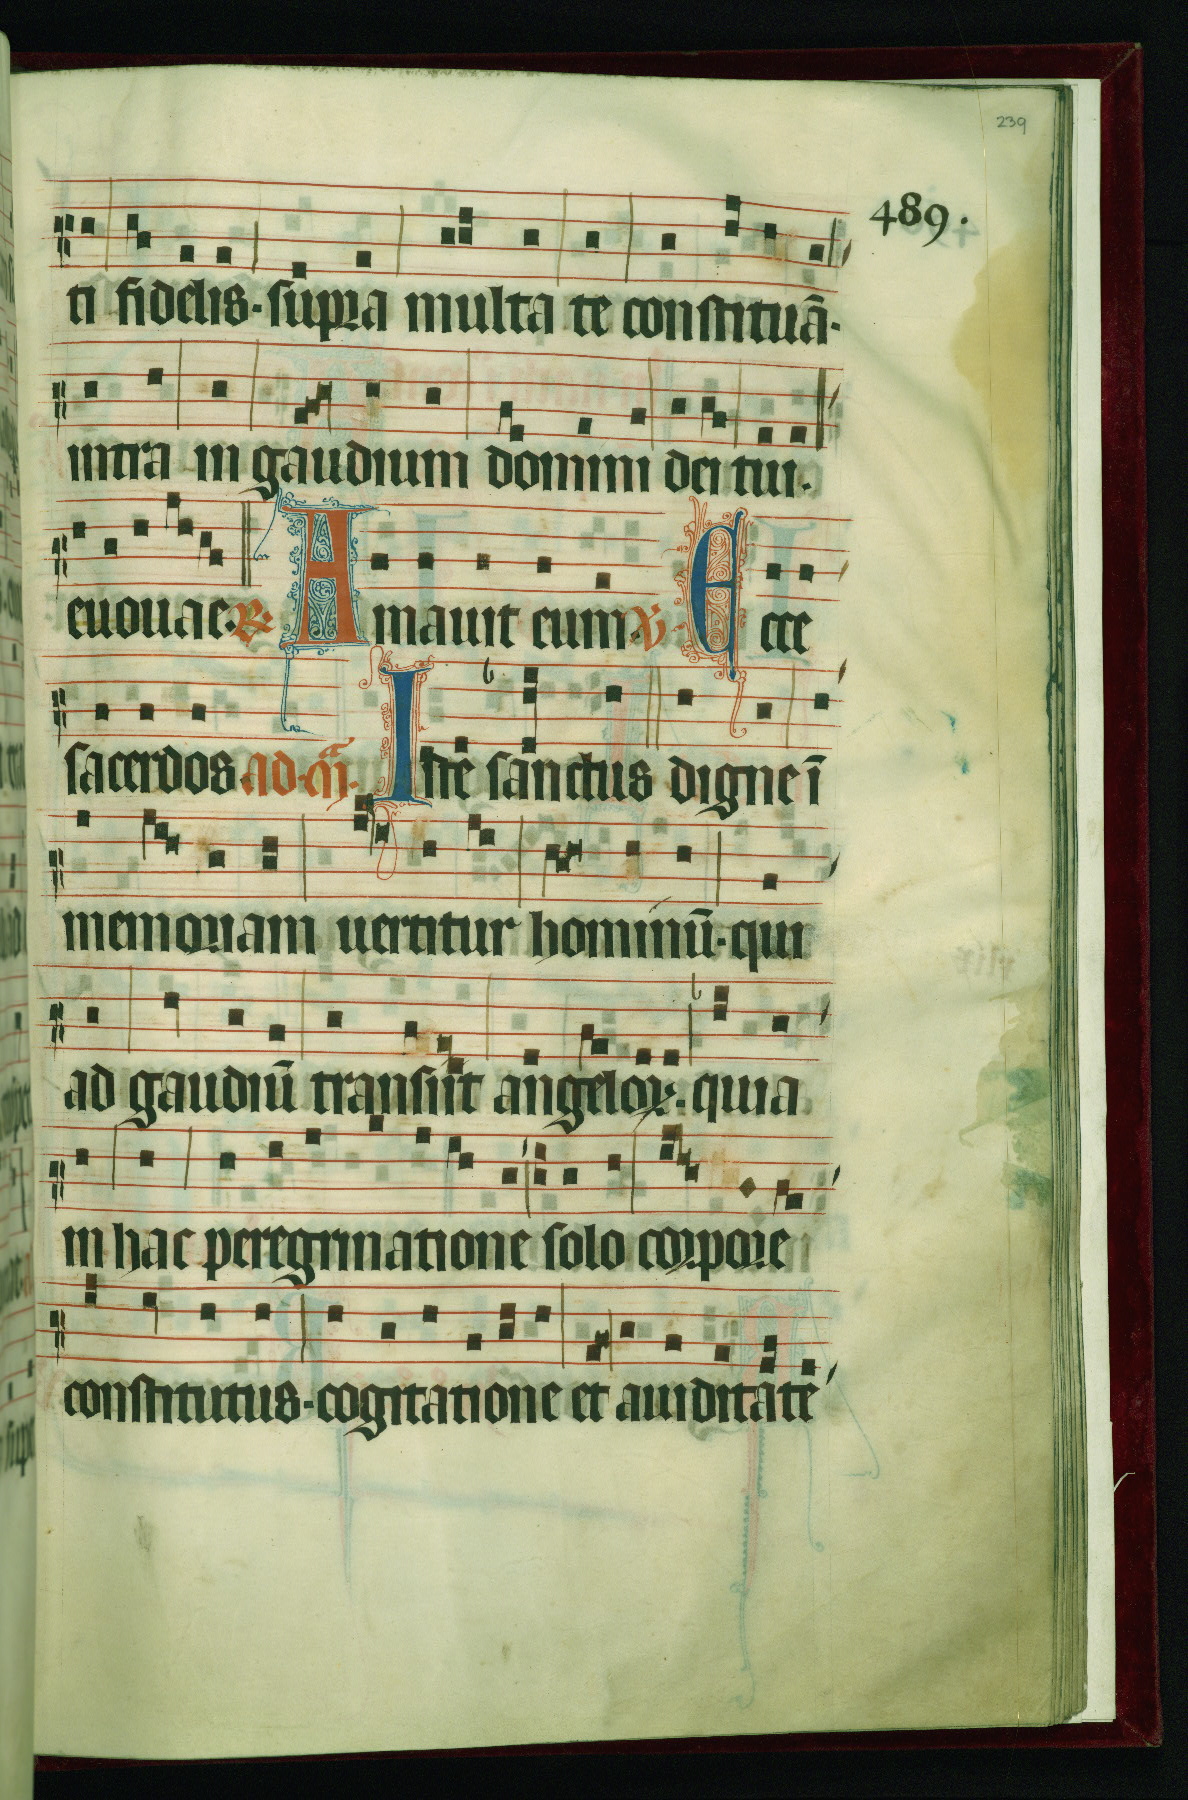 239
489.
ti fidelis. supra multa te constituā.
intra in gaudium domini dei tui.
euouae. ℟. Amauit eum. ℣. Ecce
sacerdos. ad. m̄. Iste sanctus digne ī
memoriam uertitur hominū. qui
ad gaudiū transiit angeloꝝ. quia
in hac peregrinatione solo corpore
constitutus. cogitatione et auiditate